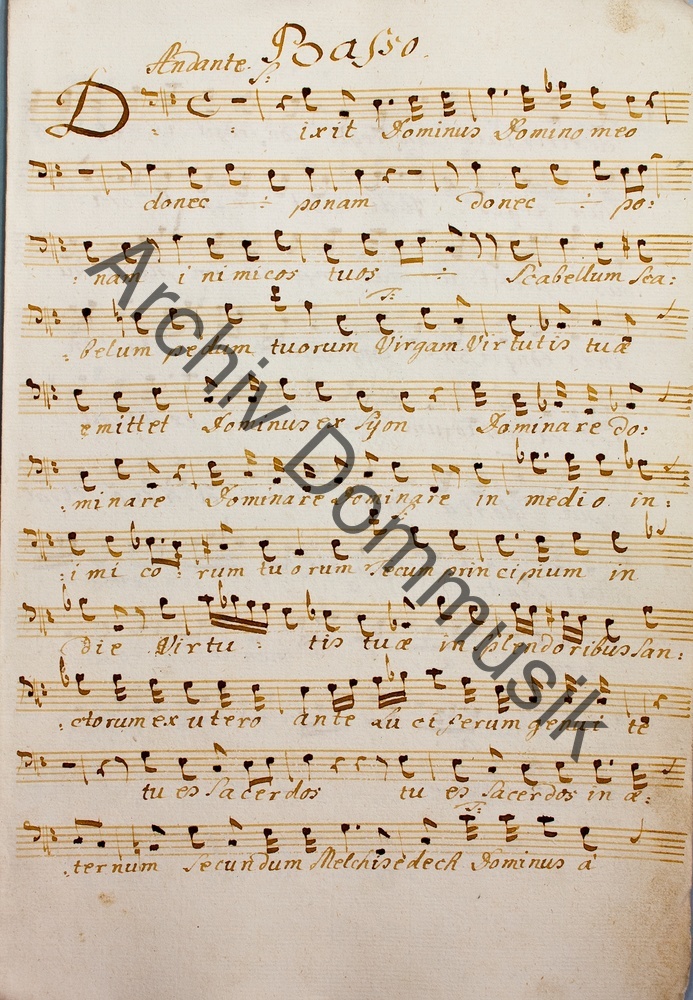 Basso.
Andante.
Dixit Dominus Domino meo
donec ÷ ponam donec ÷ po:
:nam inimicos tuos ÷ Scabellum Sca:
:belum pedum tuorum Virgam Virtutis tuæ
emittet Dominus ex Syon Dominare do:
:minare Dominare Dominare in medio in:
:imico:rum tuorum Tecum principium in
Die Virtu: tis tuæ in Splendoribus San:
:ctorum ex utero ante Luciferum genui te
tu es Sacerdos tu es Sacerdos in æ:
:ternum Secundum Melchisedech Dominus á
Archiv Dommusik